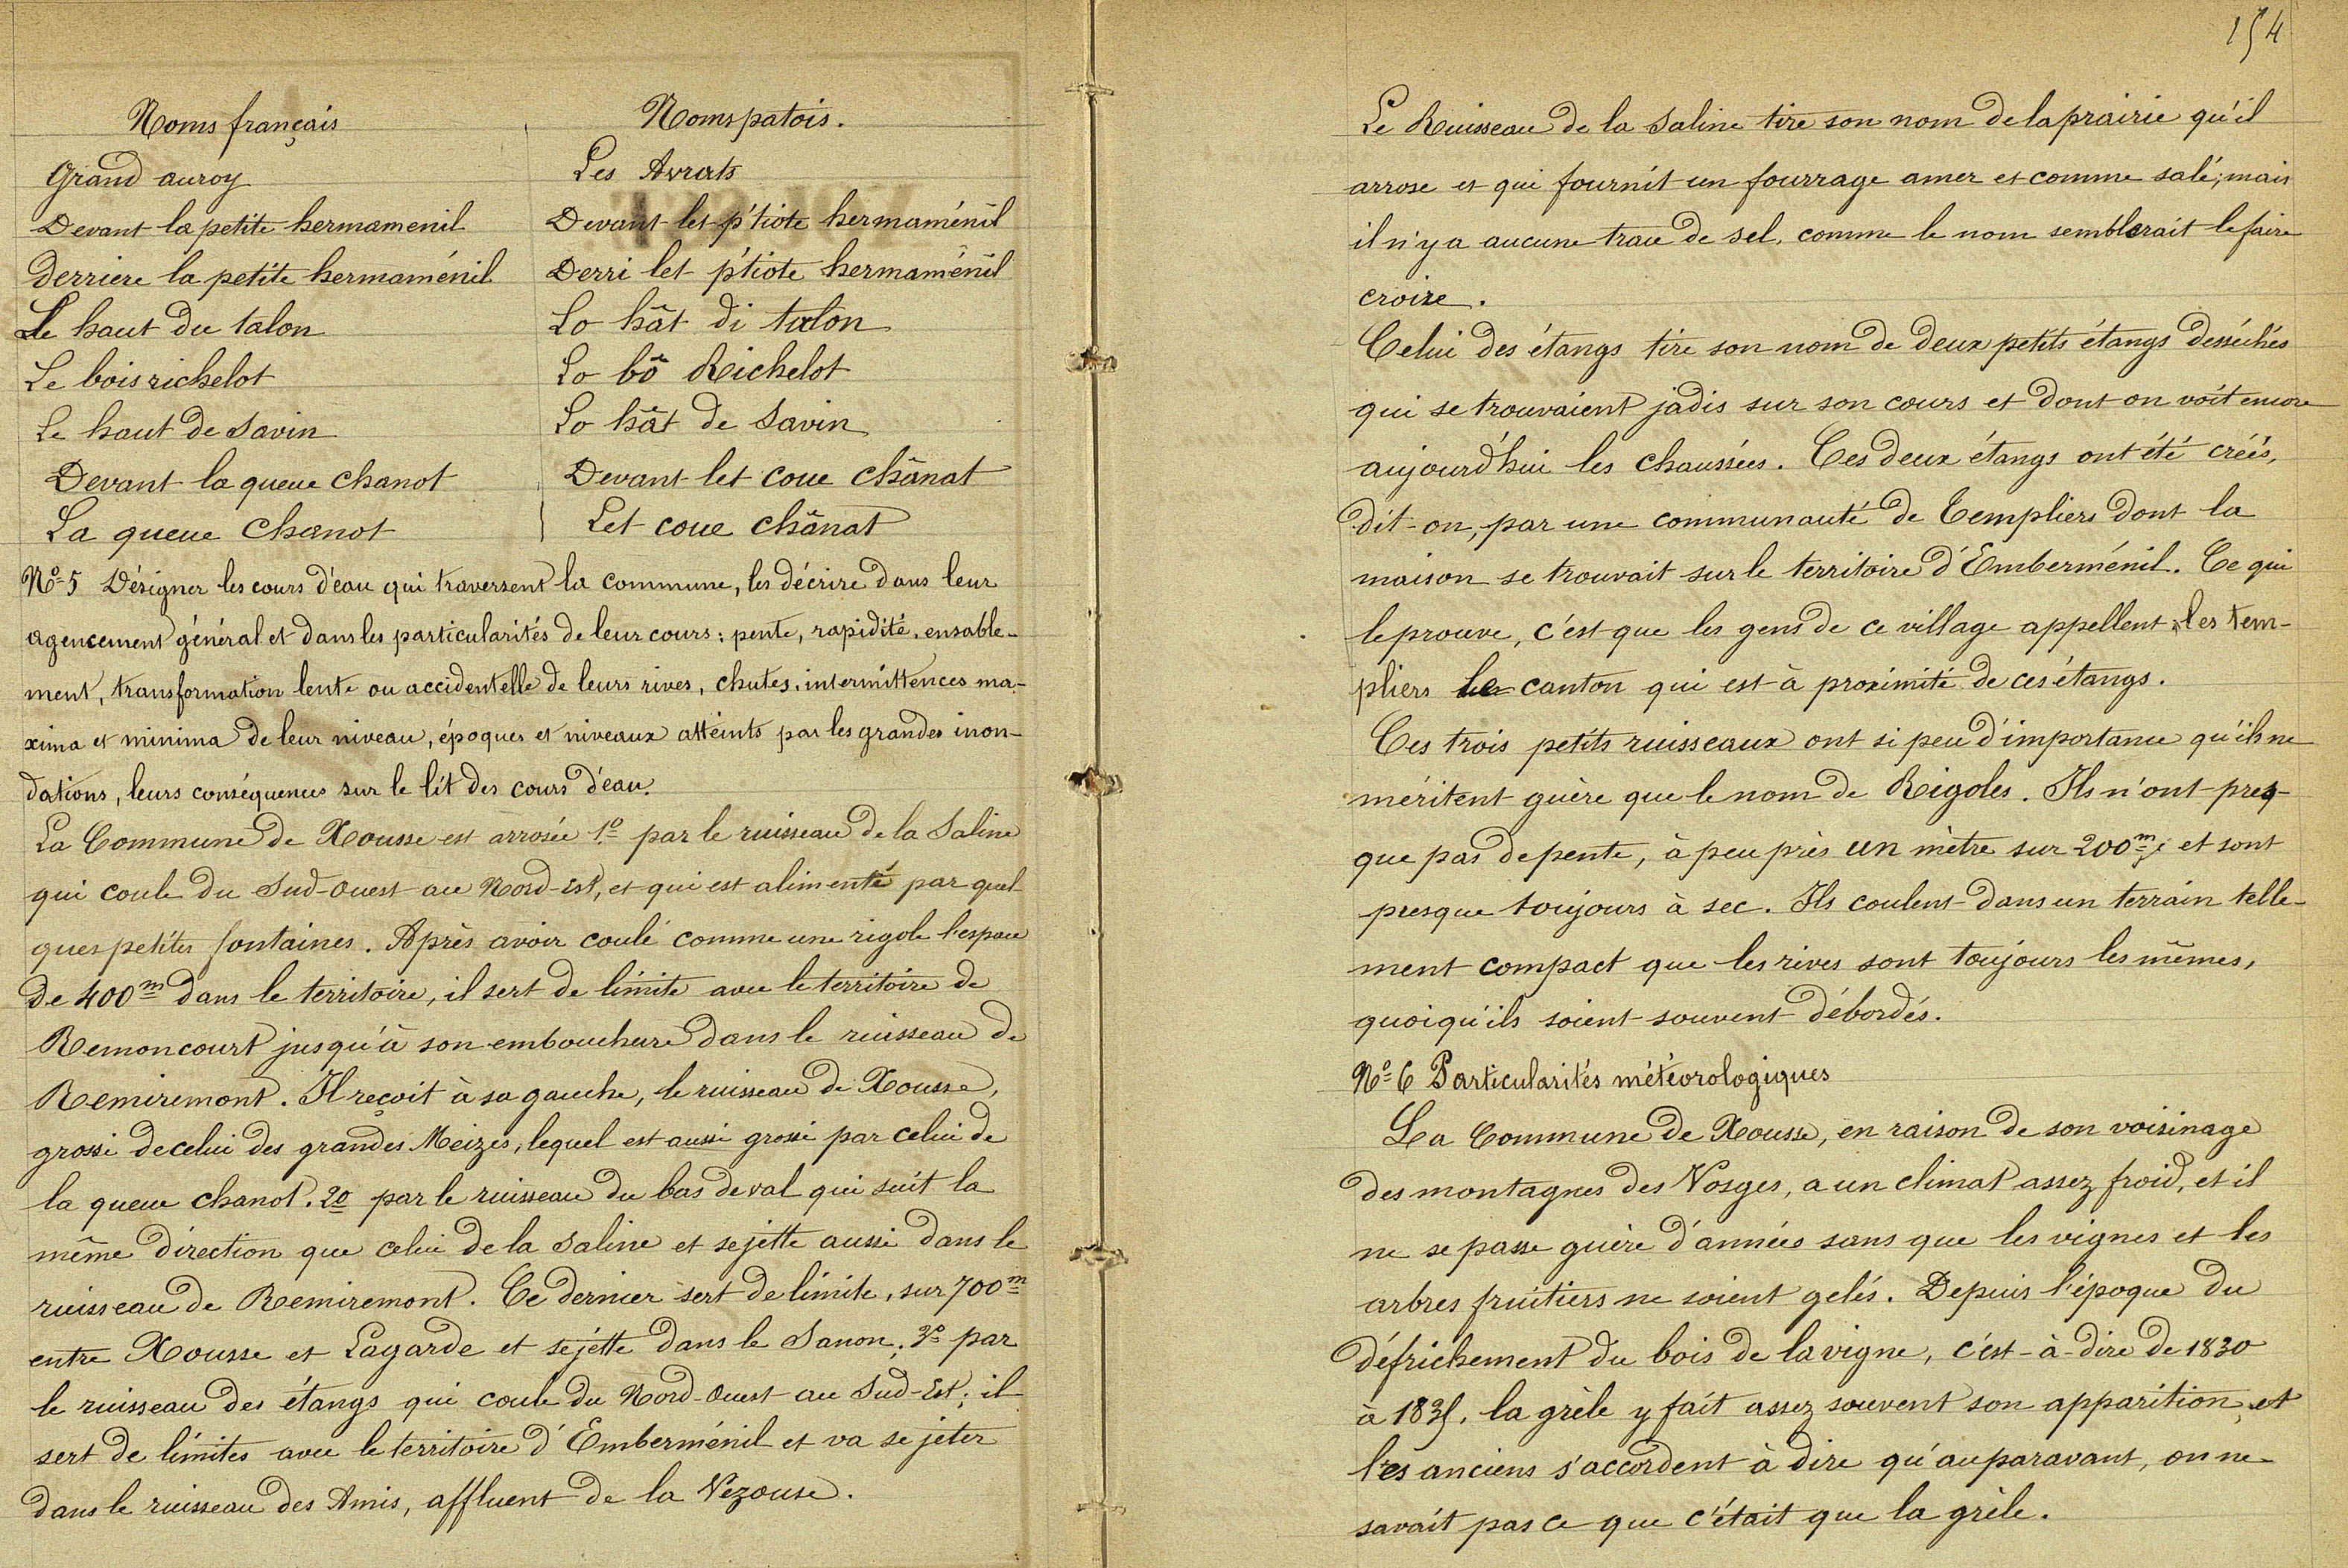 Noms français Noms patois.
Grand auroy Les Avrats
Devant la petite hermamenil Devant let p'tiote hermaménil
Derriere la petite hermaménil Derri let p'tiote hermaménil
Le haut du talon Lo hât di talon
Le bois richelot Lo bô Richelot
Le haut de Savin Lo hât de Savin
Devant la queue chanot Devant let coue chânat
La queue chanot Let coue chânat
Nº 5 Désigner les cours d'eau qui traversent la commune, les décrire dans leur
agencement général et dans les particularités de leur cours : pente, rapidité, ensable-
ment, transformation lente ou accidentelle de leurs rives, chutes, intermittences ma-
xima et minima de leur niveau, époques et niveaux atteints par les grandes inon-
dations, leurs conséquences sur le lit des cours d'eau.
La Commune de Xousse est arrosée 1º par le ruisseau de la Saline
qui coule du Sud-Ouest au Nord-Est, et qui est alimenté par quel
ques petites fontaines. Après avoir coulé comme une rigole l'espace
de 400m dans le territoire, il sert de limite avec le territoire de
Remoncourt jusqu'à son embouchure dans le ruisseau de
Remiremont. Il reçoit à sa gauche, le ruisseau de Xousse,
grossi de celui des grandes Meizes, lequel est aussi grossi par celui de
la queue chanot. 2º par le ruisseau du bas de val qui suit la
même direction que celui de la Saline et se jette aussi dans le
ruisseau de Remiremont. Ce dernier sert de limite, sur 700m
entre Xousse et Lagarde et se jette dans le Sanon. 3º par
le ruisseau des étangs qui coule du Nord-Ouest au Sud-Est; il
sert de limites avec le territoire d'Emberménil et va se jeter
dans le ruisseau des Amis, affluent de la Vezouse.
154
Le Ruisseau de la Saline tire son nom de la prairie qu'il
arrose et qui fournit un fourrage amer et comme salé; mais
il n'y a aucune trace de sel, comme le nom semblerait le faire
croire.
Celui des étangs tire son nom de deux petits étangs desséchés
qui se trouvaient jadis sur son cours et dont on voit encore
aujourd'hui les chaussées. Ces deux étangs ont été créés,
dit-on, par une communauté de Templiers dont la
maison se trouvait sur le territoire d'Emberménil. Ce qui
le prouve, c'est que les gens de ce village appellent les tem-
pliers le canton qui est à proximité de ces étangs.
Ces trois petits ruisseaux ont si peu d'importance qu'ils ne
méritent guère que le nom de Rigoles. Ils n'ont pres-
que pas de pente, à peu près un mètre sur 200m; et sont
presque toujours à sec. Ils coulent dans un terrain telle-
ment compact que les rives sont toujours les mêmes,
quoiqu'ils soient souvent débordés.
Nº 6 Particularités météorologiques
La Commune de Xousse, en raison de son voisinage
des montagnes des Vosges, a un climat assez froid, et il
ne se passe guère d'années sans que les vignes et les
arbres fruitiers ne soient gelés. Depuis l'époque du
défrichement du bois de la vigne, c'est-à-dire de 1830
à 1835, la grèle y fait assez souvent son apparition, et
les anciens s'accordent à dire qu'auparavant, on ne
savait pas ce que c'était que la grèle.